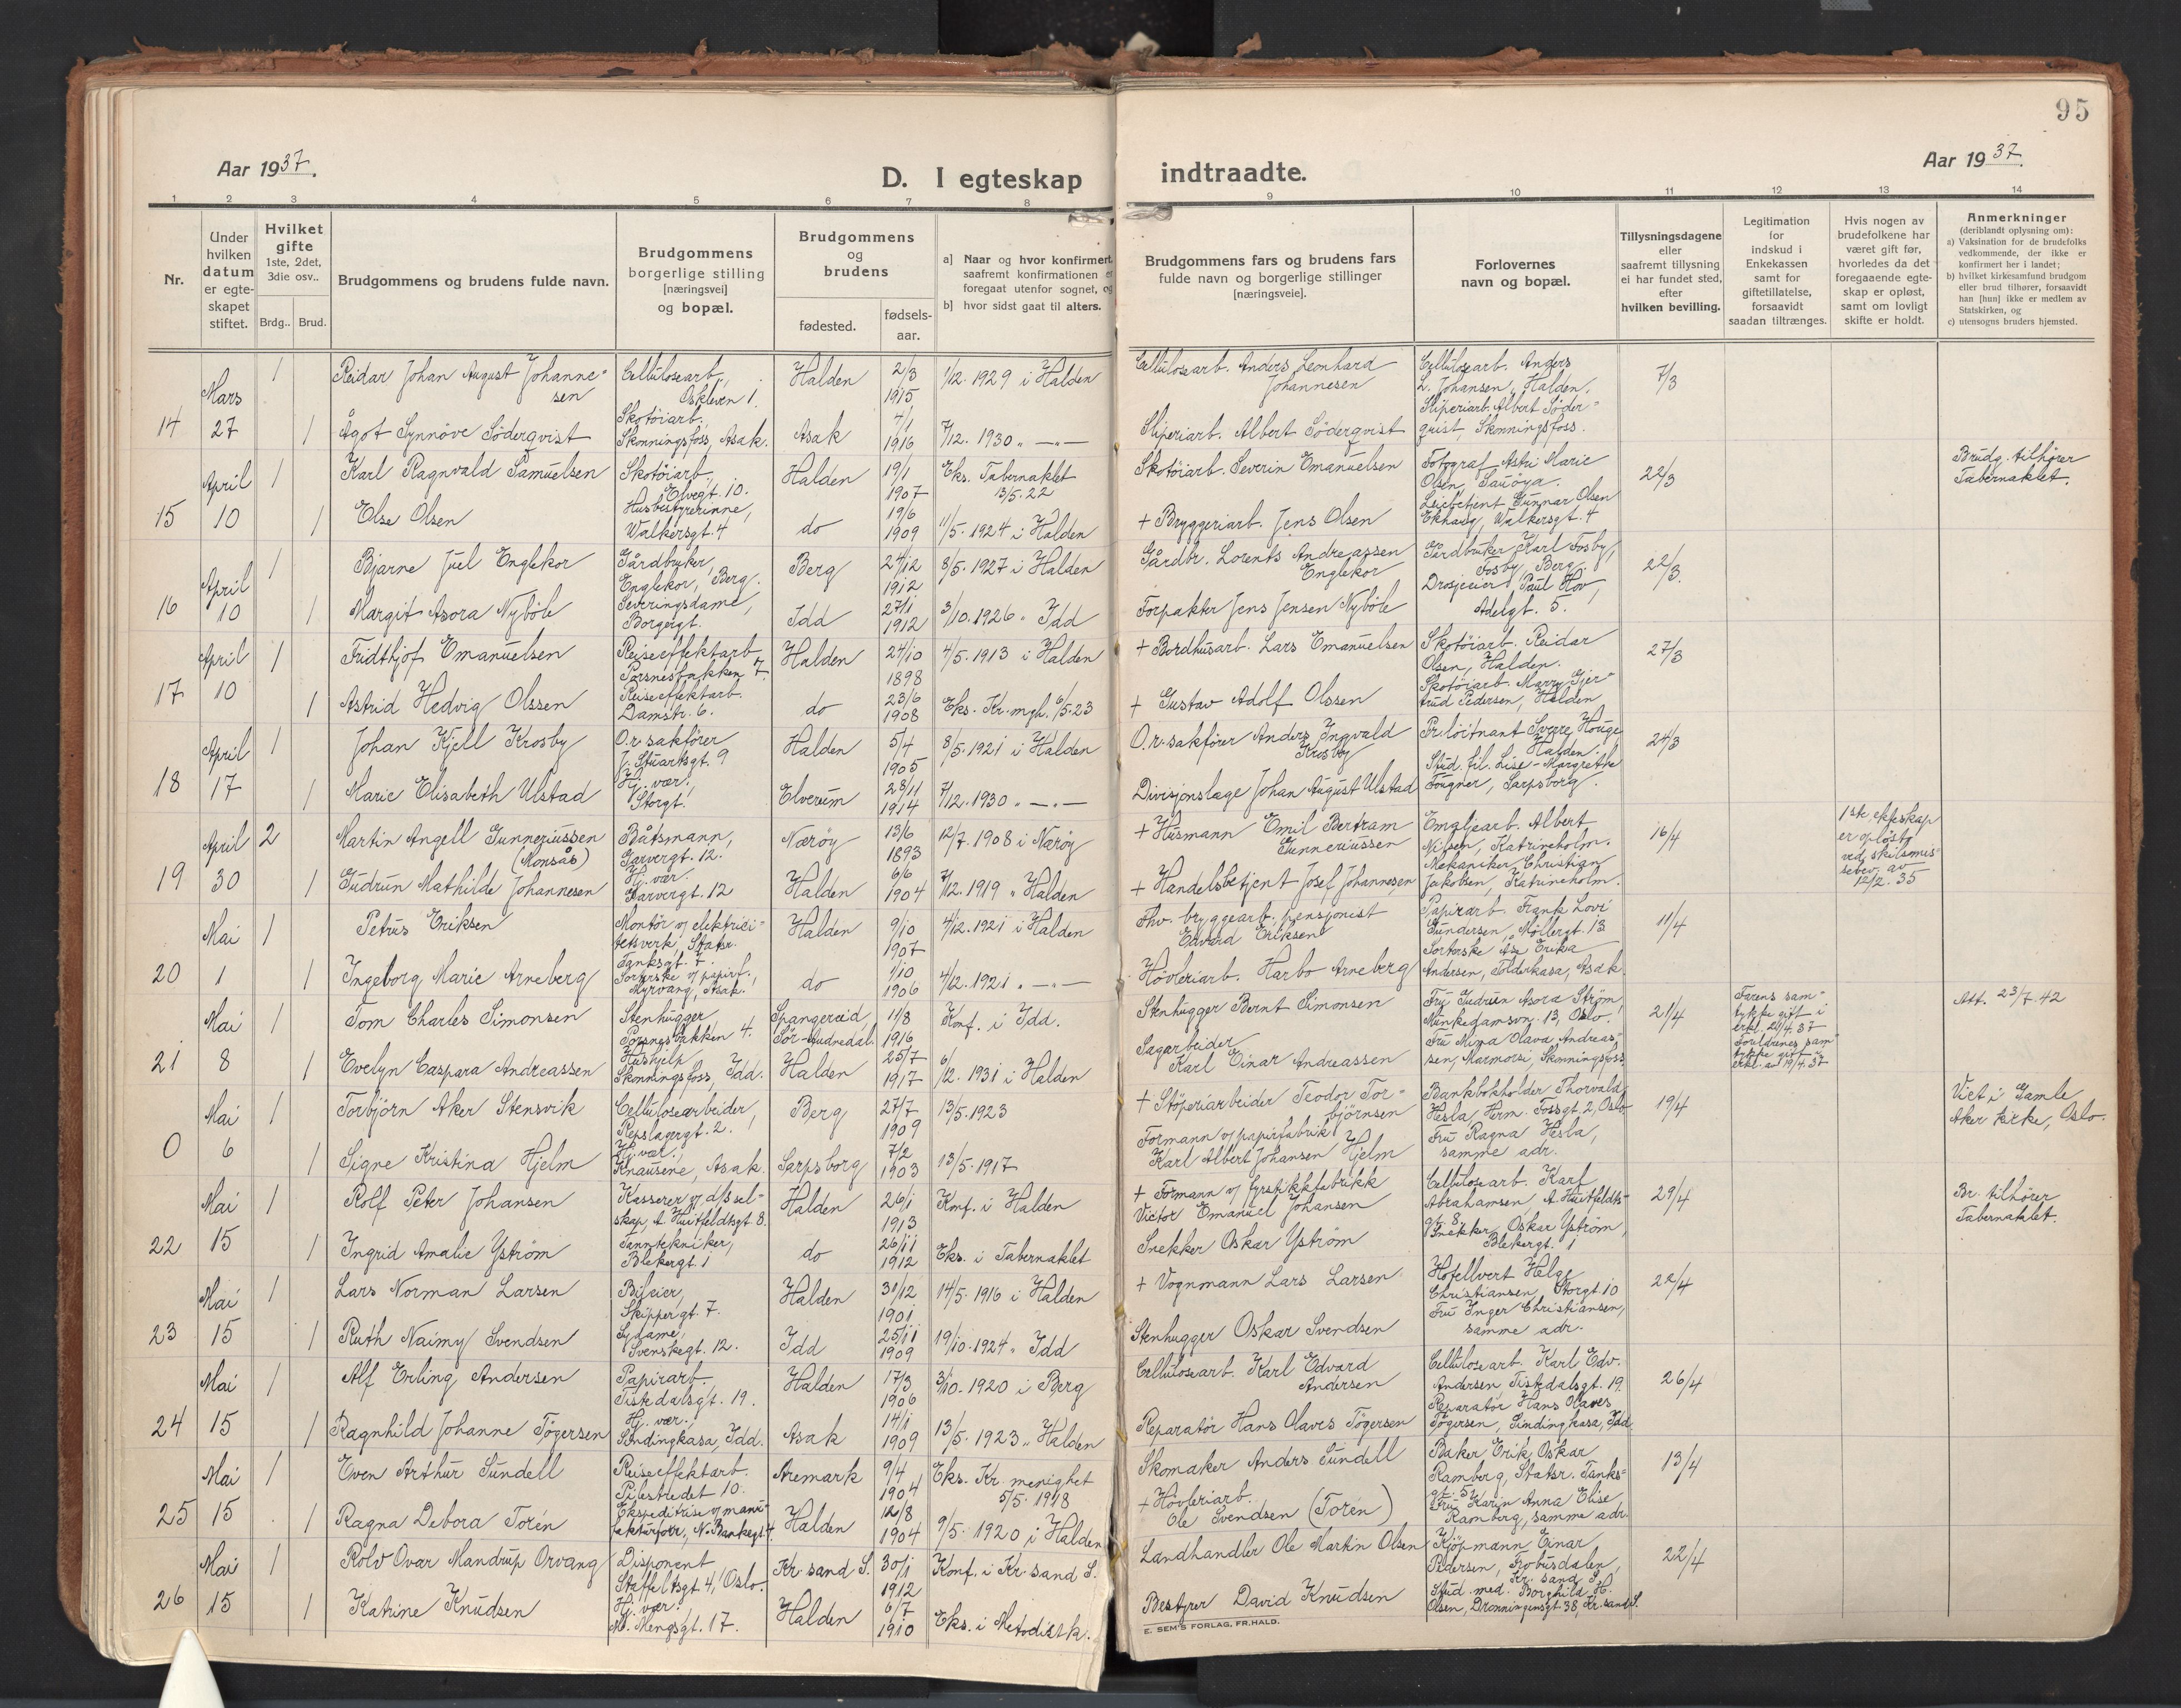 95
Aar 1937.
D. I egteskap indtraadte.
Aar 1937.
1 2 3 4 5 6 7 8 9 10 11 12 13 14
Nr.
Under hvilken datum er egte-skapet stiftet.
Hvilket gifte 1ste, 2det, 3die osv..
Brdg.. Brud.
Brudgommens og brudens fulde navn.
Brudgommens borgerlige stilling [næringsvei] og bopæl.
Brudgommens og brudens
fødested.
fødsels-aar.
a] Naar og hvor konfirmert saafremt konfirmationen er foregaat utenfor sognet, og
b] hvor sidst gaat til alters.
Brudgommens fars og brudens fars fulde navn og borgerlige stillinger [næringsveie].
Forlovernes navn og bopæl.
Tillysningsdagene eller saafremt tillysning ei har fundet sted, efter hvilken bevilling.
Legitimation for indskud i Enkekassen samt for giftetillatelse, forsaavidt saadan tiltrænges.
Hvis nogen av brudefolkene har været gift før, hvorledes da det foregaaende egte-skap er opløst, samt om lovligt skifte er holdt.
Anmerkninger (deriblandt oplysning om):
a) Vaksination for de brudefolks vedkommende, der ikke er konfirmert her i landet;
b) hvilket kirkesamfund brudgom eller brud tilhører, forsaavidt han [hun] ikke er medlem av Statskirken, og
c) utensogns bruders hjemsted.
14 Mars 27 1 Reidar Johan August Johanne-sen Cellulosearb., Oskleven 1. Halden 2/3 1915 1/12. 1929 i Halden Cellulosearb. Anders Leonhard Johannesen Cellulosearb. Anders L. Johansen, Halden. 7/3
1 Ågot Synnöve Söderqvist Skotöiarb., Skonningsfoss, Asak. Asak 4/1 1916 7/12. 1930 " —"— Sliperiarb. Albert Söderqvist Sliperiarb. Albert Söder-quist, Skonningsfoss.
15 April 10 1 Karl Ragnvald Samuelsen Skotöiarb., Elvegt. 10. Halden 19/1 1907 Eks. Tabernaklet 13/5. 22 Skotöiarb. Severin Emanuelsen Fotograf Astri Marie Olsen, Sauöya. 22/3 Brudg. tilhører Tabernaklet.
1 Else Olsen Husbestyrerinne, Walkersgt. 4 do 19/6 1909 11/5. 1924 i Halden + Bryggeriarb. Jens Olsen Gunnar Olsen Ekhaug, Walkersgt. 4
16 April 10 1 Bjarne Juel Englekor Gårdbruker, Englekor, Berg. Berg 24/12 1912 8/5. 1927 i Halden Gårdbr. Lorents Andreassen Englekor Gårdbruker Karl Fosby, Fosby, Berg. 22/3.
1 Margit Asora Nyböle Serveringsdame, Borgergt. Idd 27/1 1912 3/10. 1926 " Idd Forpakter Jens Jensen Nyböle Drosjeeier Paul Hov, Adelgt. 5.
17 April 10 1 Fridthjof Emanuelsen Reiseeffektarb. Porsnesbakken 7. Halden 24/10 1898 4/5. 1913 i Halden + Bordhusarb. Lars Emanuelsen Skotöiarb. Reidar Olsen, Halden. 27/3
1 Astrid Hedvig Olssen Reiseeffektarb. Damstr. 6. do 23/6 1908 Eks. Kr. mgh. 6/5. 23 + Gustav Adolf Olssen Skotöiarb. Marry Gjer-trud Pedersen, Halden
18 April 17 1 Johan Kjell Krosby O.r.sakförer J. Stuartsgt. 9 Halden 5/4 1905 8/5. 1921 i Halden O.r.sakförer Anders Ingvald Krosby Pr.löitnant Sverre Houge Halden. 24/3
1 Marie Elisabeth Ulstad Hj. vær., Storgt. Elverum 28/11 1914 7/12. 1930 " —"— Divisjonslæge Johan August Ulstad Stud. fil. Lise-Margrethe Fougner, Sarpsborg.
19 April 30 2 Martin Angell Gunneriussen (Monsås) Båtsmann, Garvergt. 12. Nærøy 13/6 1893 12/7. 1908 i Nærøy + Husmann Emil Bertram Gunneriussen Emaljearb. Albert Nilsen, Katrineholm. 16/4 1ste ekteskap er opløst ved skilsmis-sebev. av 12/2. 35
1 Gudrun Mathilde Johannesen Hj. vær. Garvergt. 12 Halden 6/6 1904 7/12. 1919 " Halden + Handelsbetjent Josef Johannesen Mekaniker Christian Jakobsen, Katrineholm.
20 Mai 1 1 Petrus Eriksen Montör v/ elektrici-tetsverk, Statsr. Tanksgt. 7. Halden 9/10 1907 4/12. 1921 i Halden Fhv. bryggearb., pensjonist Edvard Eriksen Papirarb. Frank Lovi Gundersen, Møllergt. 13 11/4
1 Ingeborg Marie Arneberg Sorterske v/ papirf., Myrvang, Asak. do 1/10 1906 4/12. 1921 " —"— Hövleriarb. Harbo Arneberg Sorterske Åse Erika Andersen, Folderkasa, Asak
21 Mai 8 1 Tom Charles Simonsen Stenhugger, Porsnesbakken 4. Spangereid, Sør-Audnedal. 11/8 1916 Konf. i Idd. Stenhugger Bernt Simonsen Fru Gudrun Asora Ström, Munkedamsvn. 13, Oslo. 21/4 Farens sam-tykke gift i erkl. 20/4. 37 Att. 23/7. 42
1 Evelyn Caspara Andreassen Hushjelp, Skonningsfoss, Idd. Halden 25/7 1917 6/12. 1931 i Halden Sagarbeider Karl Einar Andreassen Fru Mina Olava Andreas-sen, Marmorsi, Skonningsfoss Foreldrenes sam-tykke gitt i erkl. av 19/4. 37
0 Mai 6 1 Torbjörn Aker Stensvik Cellulosearbeider, Repslagergt. 2. Berg 27/7 1909 13/5. 1923 + Stöperiarbeider Teodor Tor-björnsen Bankbokholder Thorvald Hesla, Herm. Fossgt. 2, Oslo 19/4 Viet i Gamle Aker kirke, Oslo.
1 Signe Kristina Hjelm Hj. vær., Knausene, Asak. Sarpsborg 7/2 1903 13/5. 1917 Formann v/ papirfabrik Karl Albert Johansen Hjelm Fru Ragna Hesla, samme adr.
22 Mai 15 1 Rolf Peter Johansen Kasserer v/ d/s sel-skap, A. Huitfeldtsgt. 8. Halden 26/1 1913 Konf. i Halden + Formann v/ fyrstikkfabrikk Victor Emanuel Johansen Cellulosearb. Karl Abrahamsen, A. Huitfeldts-gt. 8 29/4 Br. tilhører Tabernaklet.
1 Ingrid Amalie Yström Tanntekniker, Blekergt. 1 do 26/11 1912 Eks. i Tabernaklet Snekker Oskar Yström Snekker Oskar Yström, Blekergt. 1
23 Mai 15 1 Lars Norman Larsen Bileier, Skippergt. 7. Halden 31/12 1901 14/5. 1916 i Halden + Vognmann Lars Larsen Hotellvert Helge Christiansen, Storgt. 10 22/4
1 Ruth Naimy Svendsen Sydame, Svenskegt. 12. Idd 25/11 1909 19/10. 1924 " Idd Stenhugger Oskar Svendsen Fru Inger Christiansen, samme adr.
24 Mai 15 1 Alf Erling Andersen Papirarb. Tistedalsgt. 19. Halden 17/3 1906 3/10. 1920 i Berg Cellulosearb. Karl Edvard Andersen Cellulosearb. Karl Edv. Andersen Tistedalsgt. 19. 26/4
1 Ragnhild Johanne Tögersen Hj. vær., Sindingkasa, Idd. Asak 14/1 1909 13/5. 1923 " Halden Reparatör Hans Olaves Tögersen Reparatör Hans Olaves Tögersen, Sindingkasa, Idd
25 Mai 15 1 Even Arthur Sundell Reiseeffektarb. Pilestredet 10. Aremark 9/4 1904 Eks. Kr. menighet 5/5. 1918 Skomaker Anders Sundell Baker Erik Oskar Ramberg, Statsr. Tanks-gt. 5. 13/4
1 Ragna Debora Torén Ekspeditrise v/ manu-fakturforr., N. Bankegt. 4. Halden 12/8 1904 9/5. 1920 i Halden + Hövleriarb. Ole Svendsen (Torén) Fru Karin Anna Elise Ramberg, samme adr.
26 Mai 15 1 Rolv Ovar Mandrup Orvang Disponent Staffeltsgt. 4, Oslo. Kr.sand S. 30/1 1912 Konf. i Kr.sand S. Landhandler Ole Martin Olsen Kjöpmann Einar Pedersen, Frobusdalen, Kr.sand S. 22/4
1 Katrine Knudsen Hj. vær., M. Mengsgt. 17. Halden 6/7 1910 Eks. i Metodistk. Bestyrer David Knudsen Stud. med. Borghild H. Olsen, Dronningensgt. 38, Kr.sand S.
E. SEM'S FORLAG, FR.HALD.